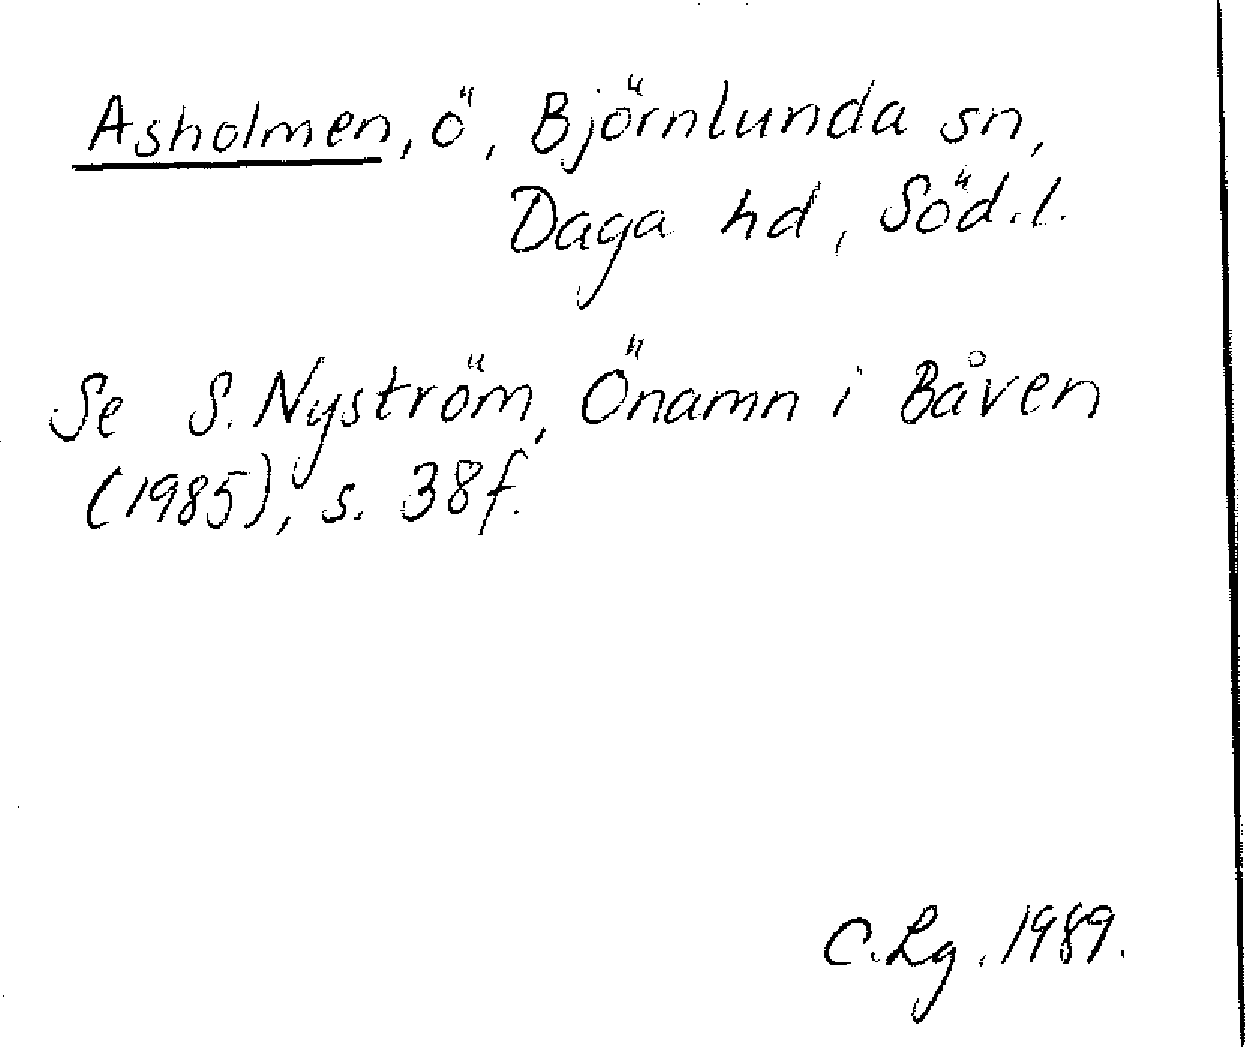 Asholmen, ö, Björnlunda sn,
Daga hd, Söd.l.
Se S. Nyström, Önamn i Båven
(1985), s. 38f.
C.Lg. 1989.